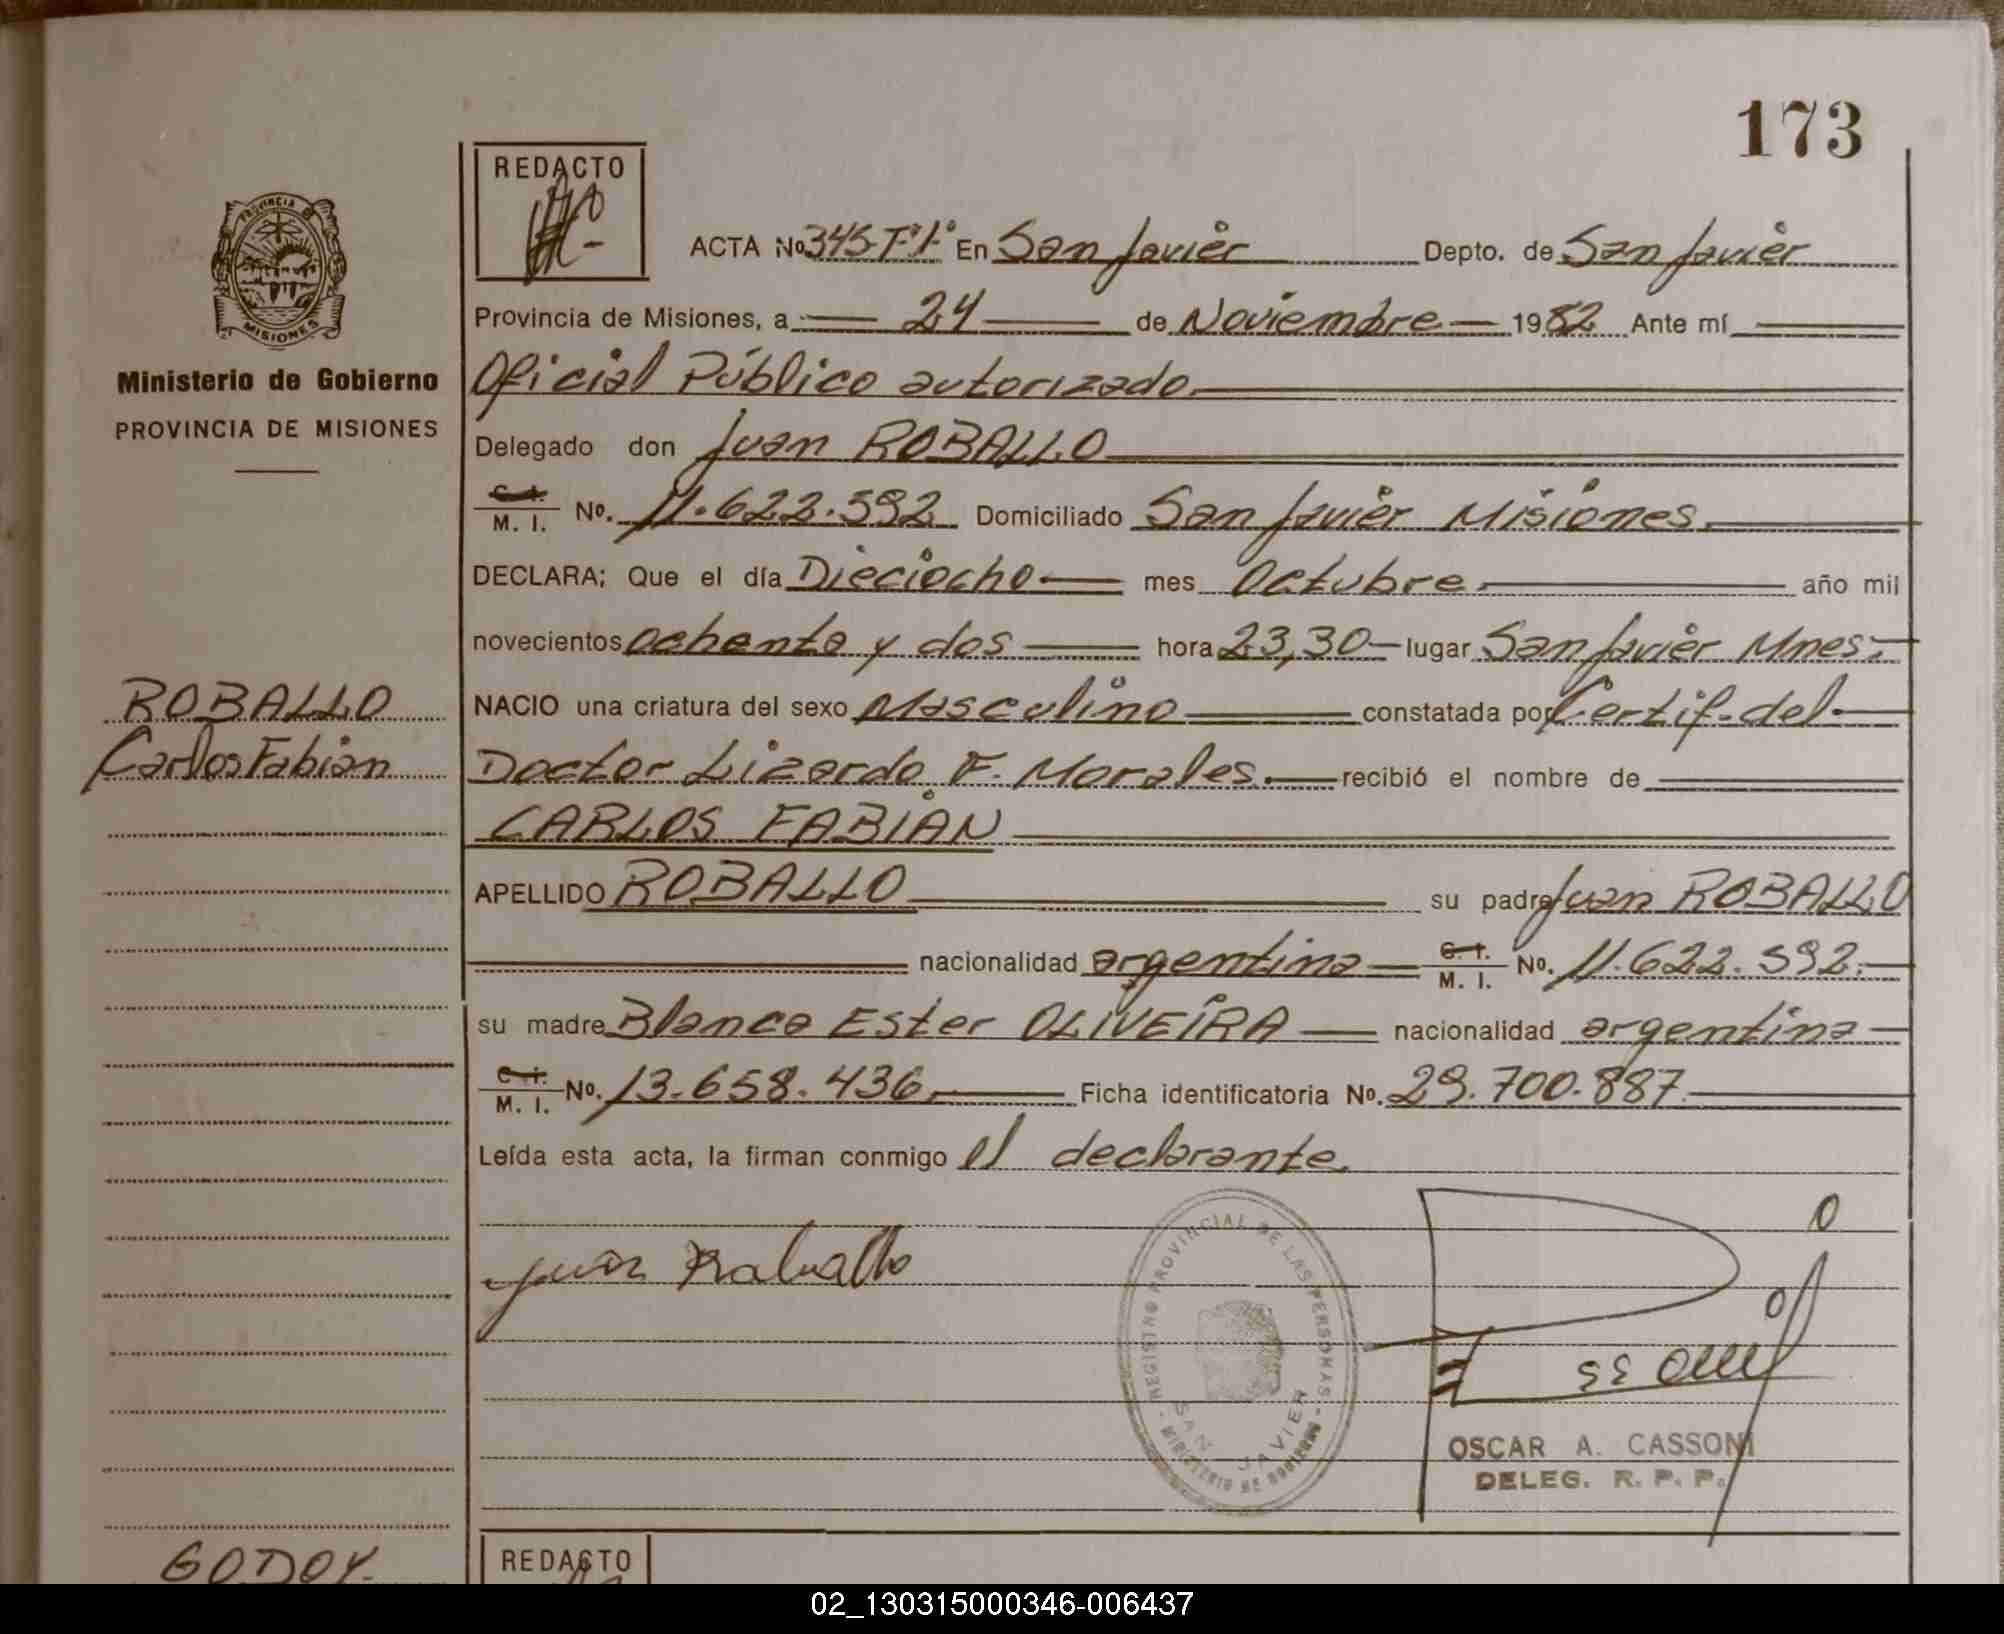 173
REDACTO
PROVINCIA DE
MISIONES
ACTA No 345-Tº1º En San Javier Depto. de San Javier
Provincia de Misiones, a 24 de Noviembre 1982 Ante mí
Ministerio de Gobierno
PROVINCIA DE MISIONES
Oficial Público autorizado.
Delegado don Juan ROBALLO
C. I. M. I. No. 11.622.592 Domiciliado San Javier Misiones.
DECLARA; Que el día Dieciocho mes Octubre. año mil
novecientos ochenta y dos hora 23,30 lugar San Javier Mnes.
ROBALLO
Carlos Fabian
NACIO una criatura del sexo Masculino constatada por Certif. del
Doctor Lizardo F. Morales. recibió el nombre de
CARLOS FABIAN
APELLIDO ROBALLO su padre Juan ROBALLO
nacionalidad argentina C. I. M. I. No. 11.622.592.
su madre Blanca Ester OLIVEIRA nacionalidad argentina
C. I. M. I. No. 13.658.436. Ficha identificatoria No. 29.700.887.
Leída esta acta, la firman conmigo el declarante.
Juan Roballo
REGISTRO PROVINCIAL DE LAS PERSONAS - MINISTERIO DE GOBIERNO -
SAN JAVIER
OSCAR A. CASSONI
DELEG. R. P. P.
GODOY.
REDACTO
02_130315000346-006437